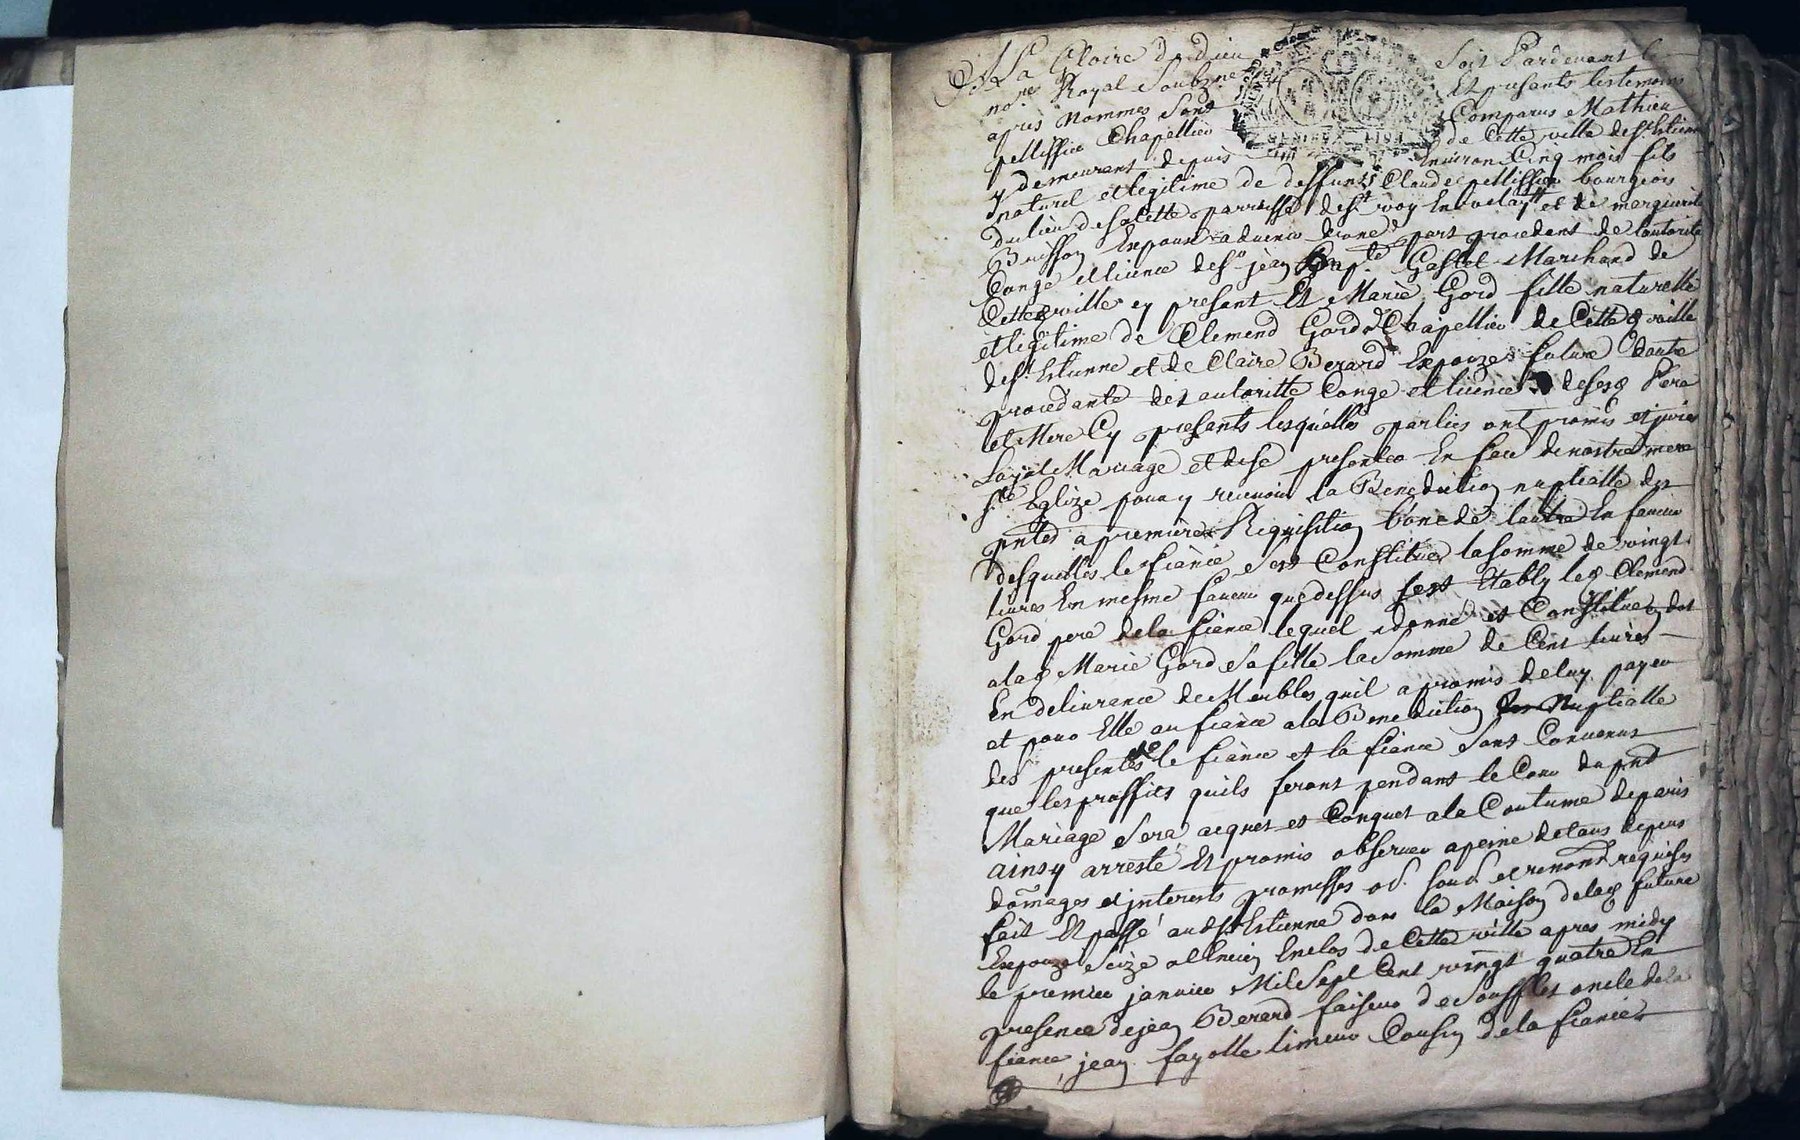 A La Gloire de Dieu Soit Pardevant le
no.re Royal Soubz.ne Et presents les temoins
apres Nommes Sont Comparus Mathieu
pellissier Chapellier de Cette ville de st. Estienne
y demeurant depuis Environ Cinq mois fils
naturel et legitime de deffunts Claude pellissier bourgeois
du lieu de Salette parroisse de st. voy En velay et de marguerite
Buisson Expoux advenir d'une part procedant de l'autorite
Conge et licence de sr. jean Bap.te Gastel Marchand de
Cette ville cy present Et Marie Gord fille naturelle
et legitime de Clemend Gord Chapellier de Cette d. ville
de st. Estienne et de Claire Berard Expouze future d'autre
procedante de l autoritte Conge et licence de sesd. Pere
et Mere Cy presents lesquelles parties ont promis et jurés
Loyal Mariage et de se presenter En face de nostre mere
ste. Eglize pour y recevoir la Benediction nuptialle des
pntes a premiere Requisition l'une de lautre En faveur
desquelles le fiance s'est Constitué la somme de vingt
livres En mesme faveur que dessus s'est Etably led. Clemend
Gord pere de la fiance lequel a donné et Constitué En dot
a lad. Marie Gord sa fille la somme de Cent livres
En delivrance de Meubles quil a promis de luy payer
et pour Elle au fiance a la Benediction Nuptialle
des presentes le fiance et la fiance Sont Convenus
que les proffits quils feront pendant le Cour du pnt
Mariage Sera acquet et Conquet a la Coutume de paris
ainsy arresté Et promis observer a peine de tous depens
domages et jnterests promesses ob. soub. et renon.on requises
fait Et passé aud. st. Estienne dans la Maison de lad. future
Expouze Seize allencien Enclos de Cette ville apres midy
le premier janvier Mil Sept Cent vingt quatre En
presence de jean Berard faiseur de Soufflet oncle de la
fiance, jean fayolle limeur Cousin de la fiancée